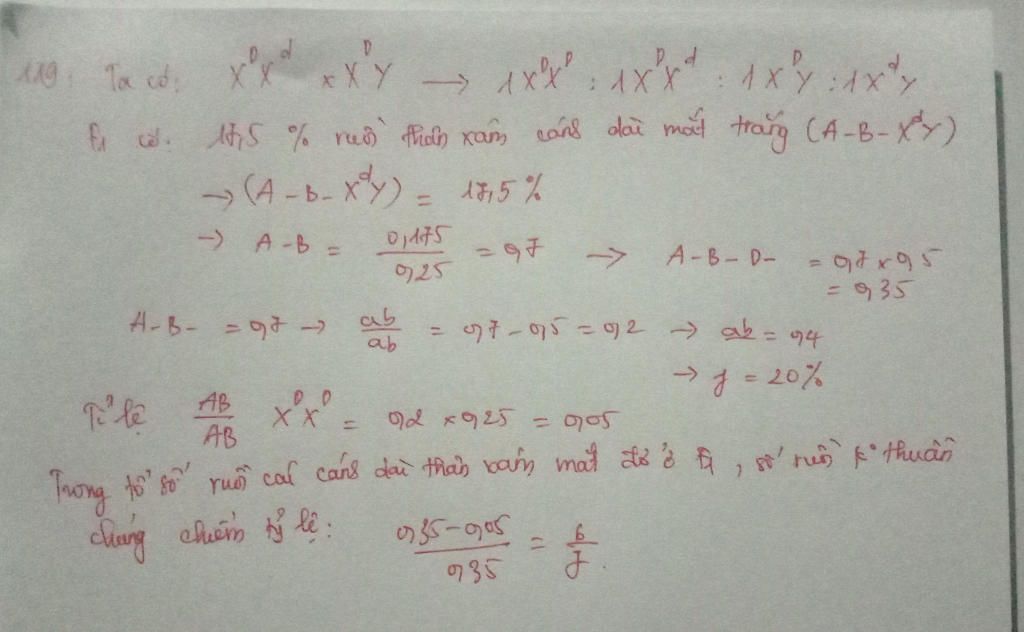 119: Ta có: X^D X^d × X^D Y → 1X^D X^D : 1X^D X^d : 1X^D Y : 1X^d Y
F1 có: 17,5 % ruồi thân xám cánh dài mắt trắng (A-B-X^d Y)
→ (A-B-X^d Y) = 17,5 %
→ A-B = 0,175/0,25 = 0,7 → A-B-D- = 0,7 × 0,5
= 0,35
A-B- = 0,7 → ab/ab = 0,7 - 0,5 = 0,2 → ab = 0,4
→ f = 20%
Tỉ lệ AB/AB X^D X^D = 0,2 × 0,25 = 0,05
Trong tổ số ruồi cái cánh dài thân xám mắt đỏ ở F1, số ruồi k° thuần
chủng chiếm tỷ lệ: 0,35-0,05/0,35 = 6/7.